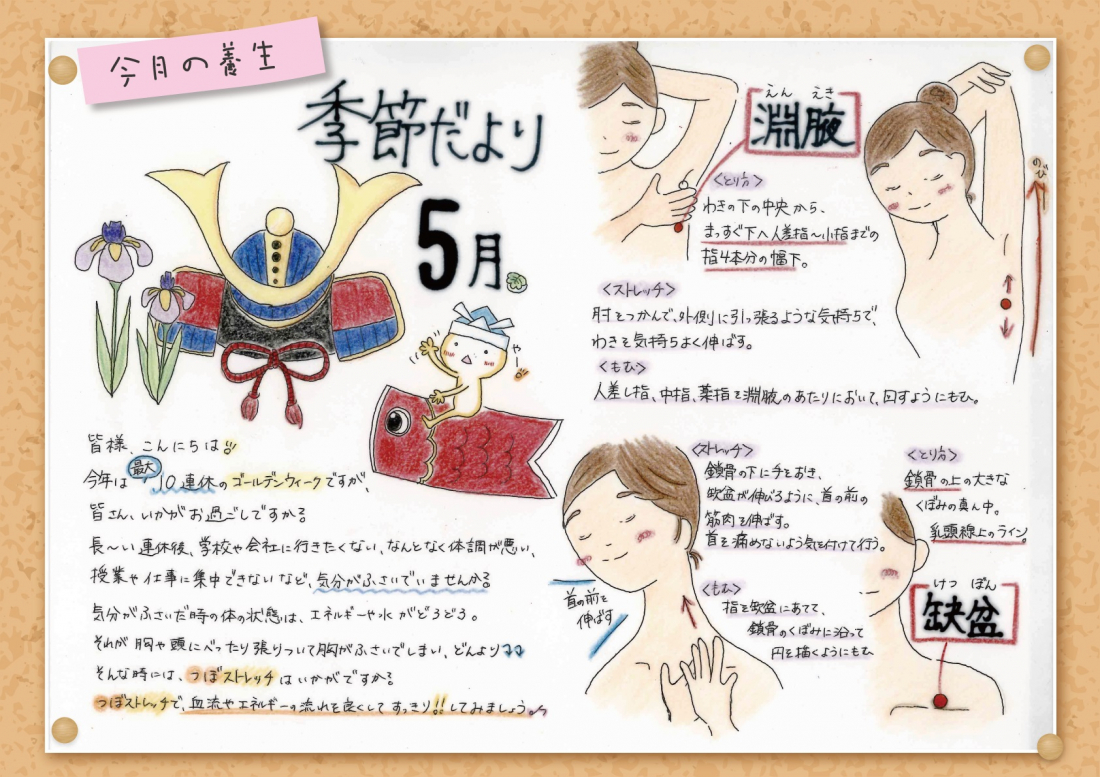 今月の養生
季節だより
5月
やー
皆様、こんにちは
今年は最大10連休のゴールデンウィークですが、
皆さん、いかがお過ごしですか?
長〜い連休後、学校や会社に行きたくない、なんとなく体調が悪い、
授業や仕事に集中できないなど、気分がふさいでいませんか?
気分がふさいだ時の体の状態は、エネルギーや水がどろどろ。
それが胸や頭にべったり張りついて胸がふさいでしまい、どんより
そんな時には、つぼストレッチはいかがですか?
つぼストレッチで、血流やエネルギーの流れを良くしてすっきり!!してみましょう。
えん えき
淵腋
<とり方>
わきの下の中央から、
まっすぐ下へ人差指〜小指までの
指4本分の幅下。
のび
<ストレッチ>
肘をつかんで、外側に引っ張るような気持ちで、
わきを気持ちよく伸ばす。
<もむ>
人差し指、中指、薬指を淵腋のあたりにおいて、回すようにもむ。
<ストレッチ>
鎖骨の下に手をおき、
缺盆が伸びるように、首の前の
筋肉を伸ばす。
首を痛めないよう気を付けて行う。
首の前を
伸ばす
<もむ>
指を缺盆にあてて、
鎖骨のくぼみに沿って
円を描くようにもむ
<とり方>
鎖骨の上の大きな
くぼみの真ん中。
乳頭線上のライン。
けつ ぼん
缺盆